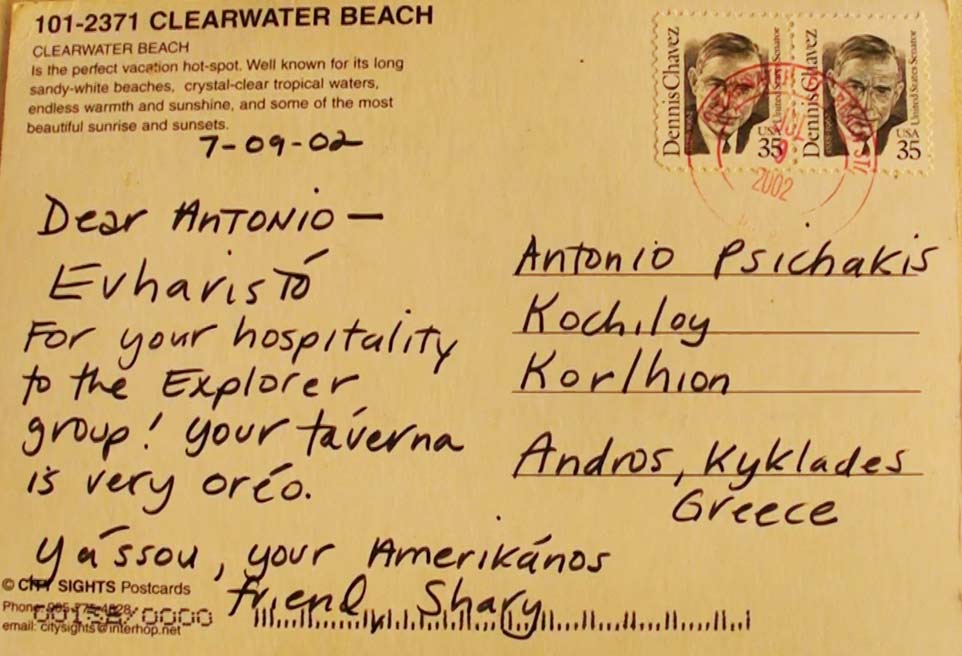 101-2371 CLEARWATER BEACH
CLEARWATER BEACH
Is the perfect vacation hot-spot. Well known for its long
sandy-white beaches, crystal-clear tropical waters,
endless warmth and sunshine, and some of the most
beautiful sunrise and sunsets.
7-09-02
Dear Antonio —
Evharistó
For your hospitality
to the Explorer
group! Your táverna
is very oréo.
Yássou, your Amerikános
friend, Shary
© CITY SIGHTS Postcards
Phone: 905-775-4828
email: citysights@interhop.net
Dennis Chavez
United States Senator
USA
35
Dennis Chavez
United States Senator
USA
35
JUL
9
2002
Antonio Psichakis
Kochiloy
Korlhion
Andros, Kyklades
Greece